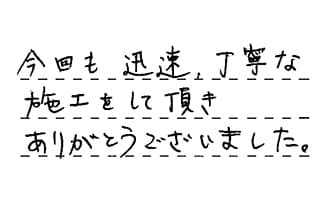 今回も 迅速、丁寧な
施工をして頂き
ありがとうございました。